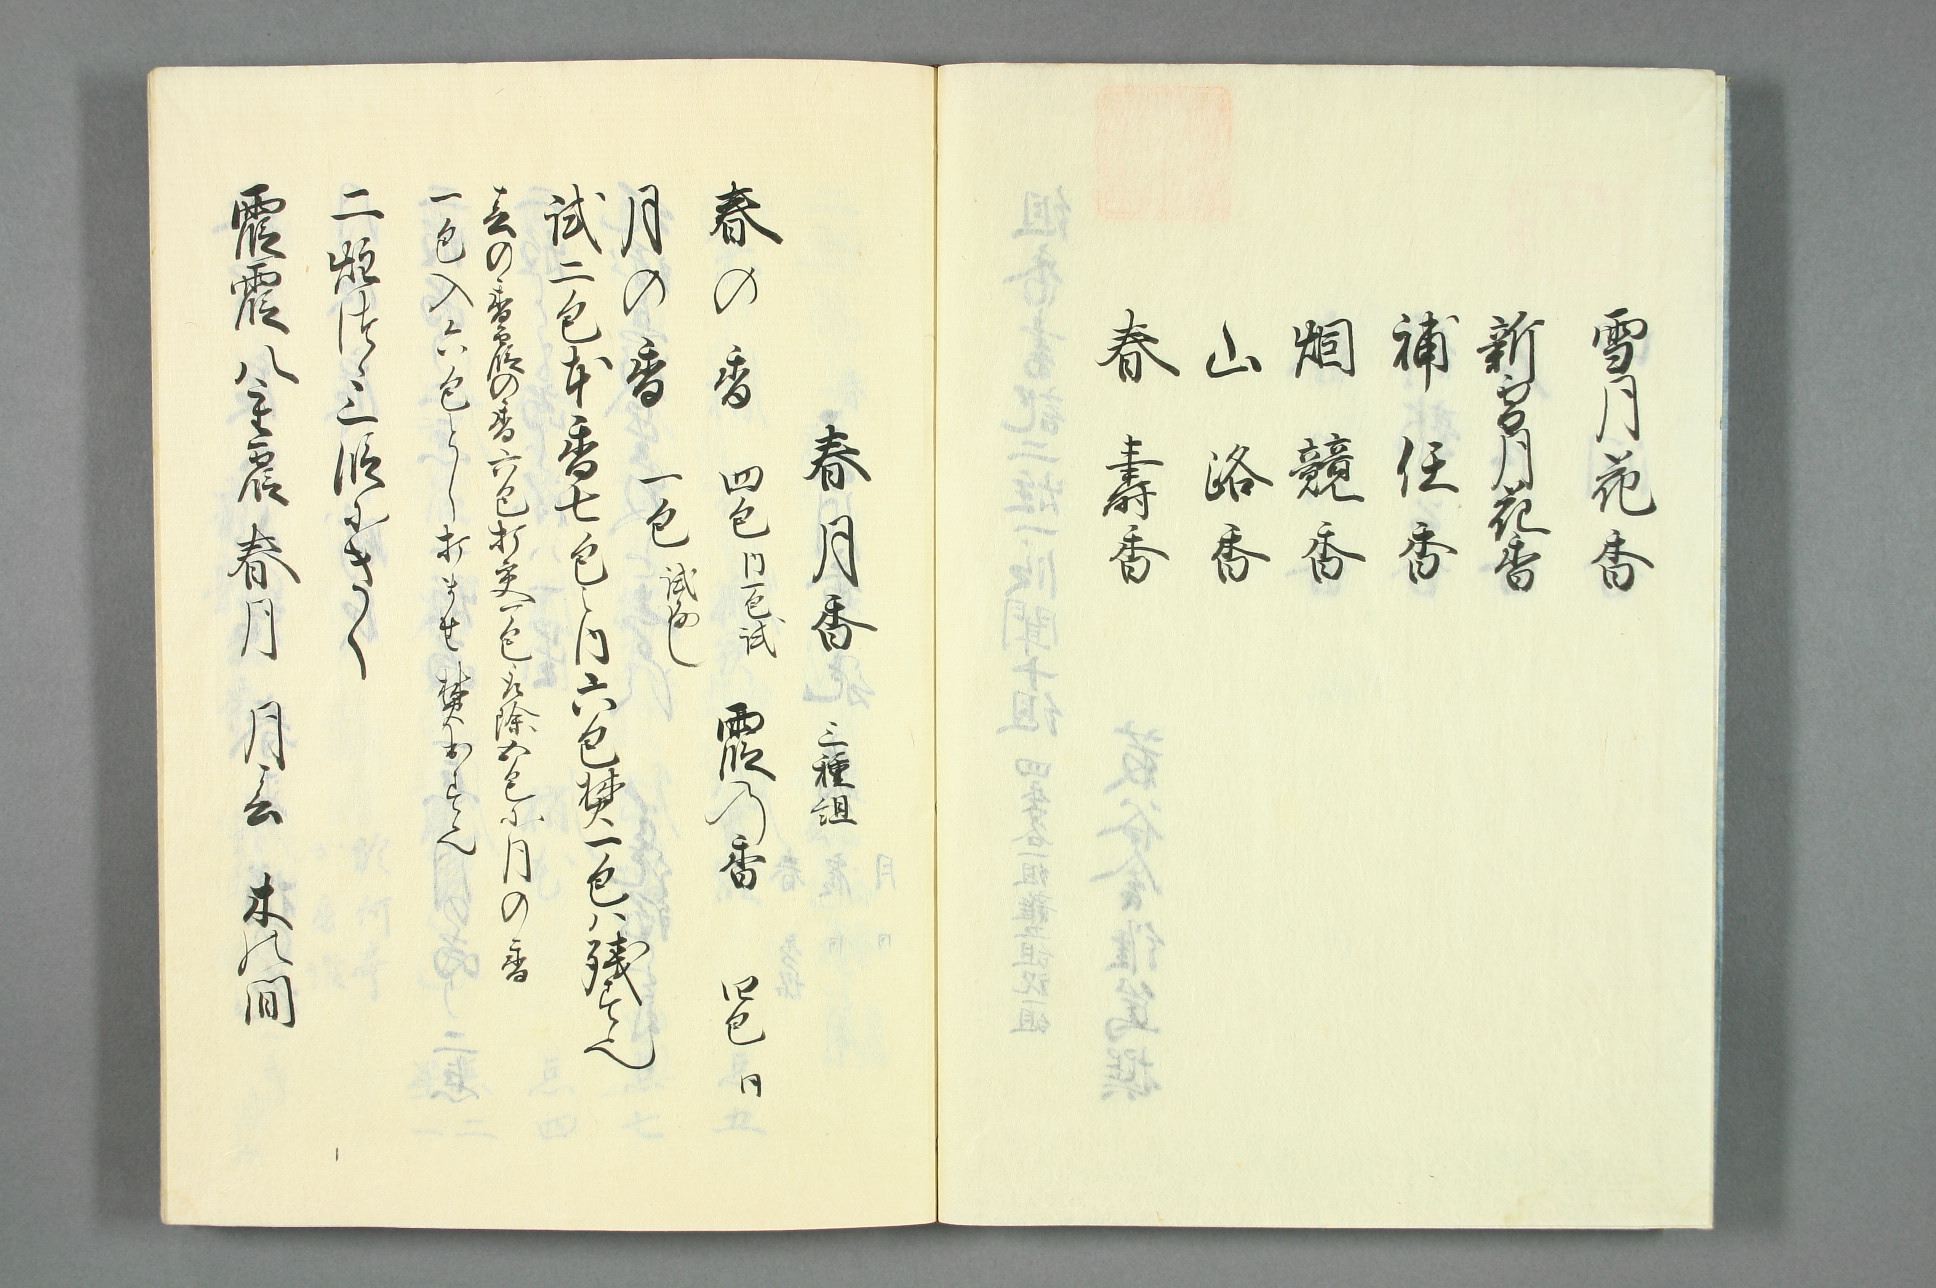 雪月花香
新雪月花香
補任香
烟競香
山路香
春壽香
春月香 三種組
春の香 四包 内一包試 霞乃香 四包 同
月の香 一包 試なし
試二包本香七包之内六包焚一包ハ残すへし
春の香霞の香六包打交一包取除五包に月の香
一包入六包として打ませ焚出すへし
二炷つゝ三順にきく
霞霞ハ 春月 月 木の間